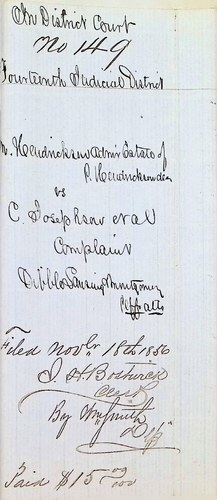 In District Court
No 149
Fourteenth Judicial District
Hendrickson Admr Estate of
P. Hendrickson decd
vs
C. Josephson et al
Complaint
Dibble Lansing Montgomery
Plffs attys
Filed Novbr 18th 1856
J. H. Bostwick
Clerk
By Wm Smith
Paid $15 00/100